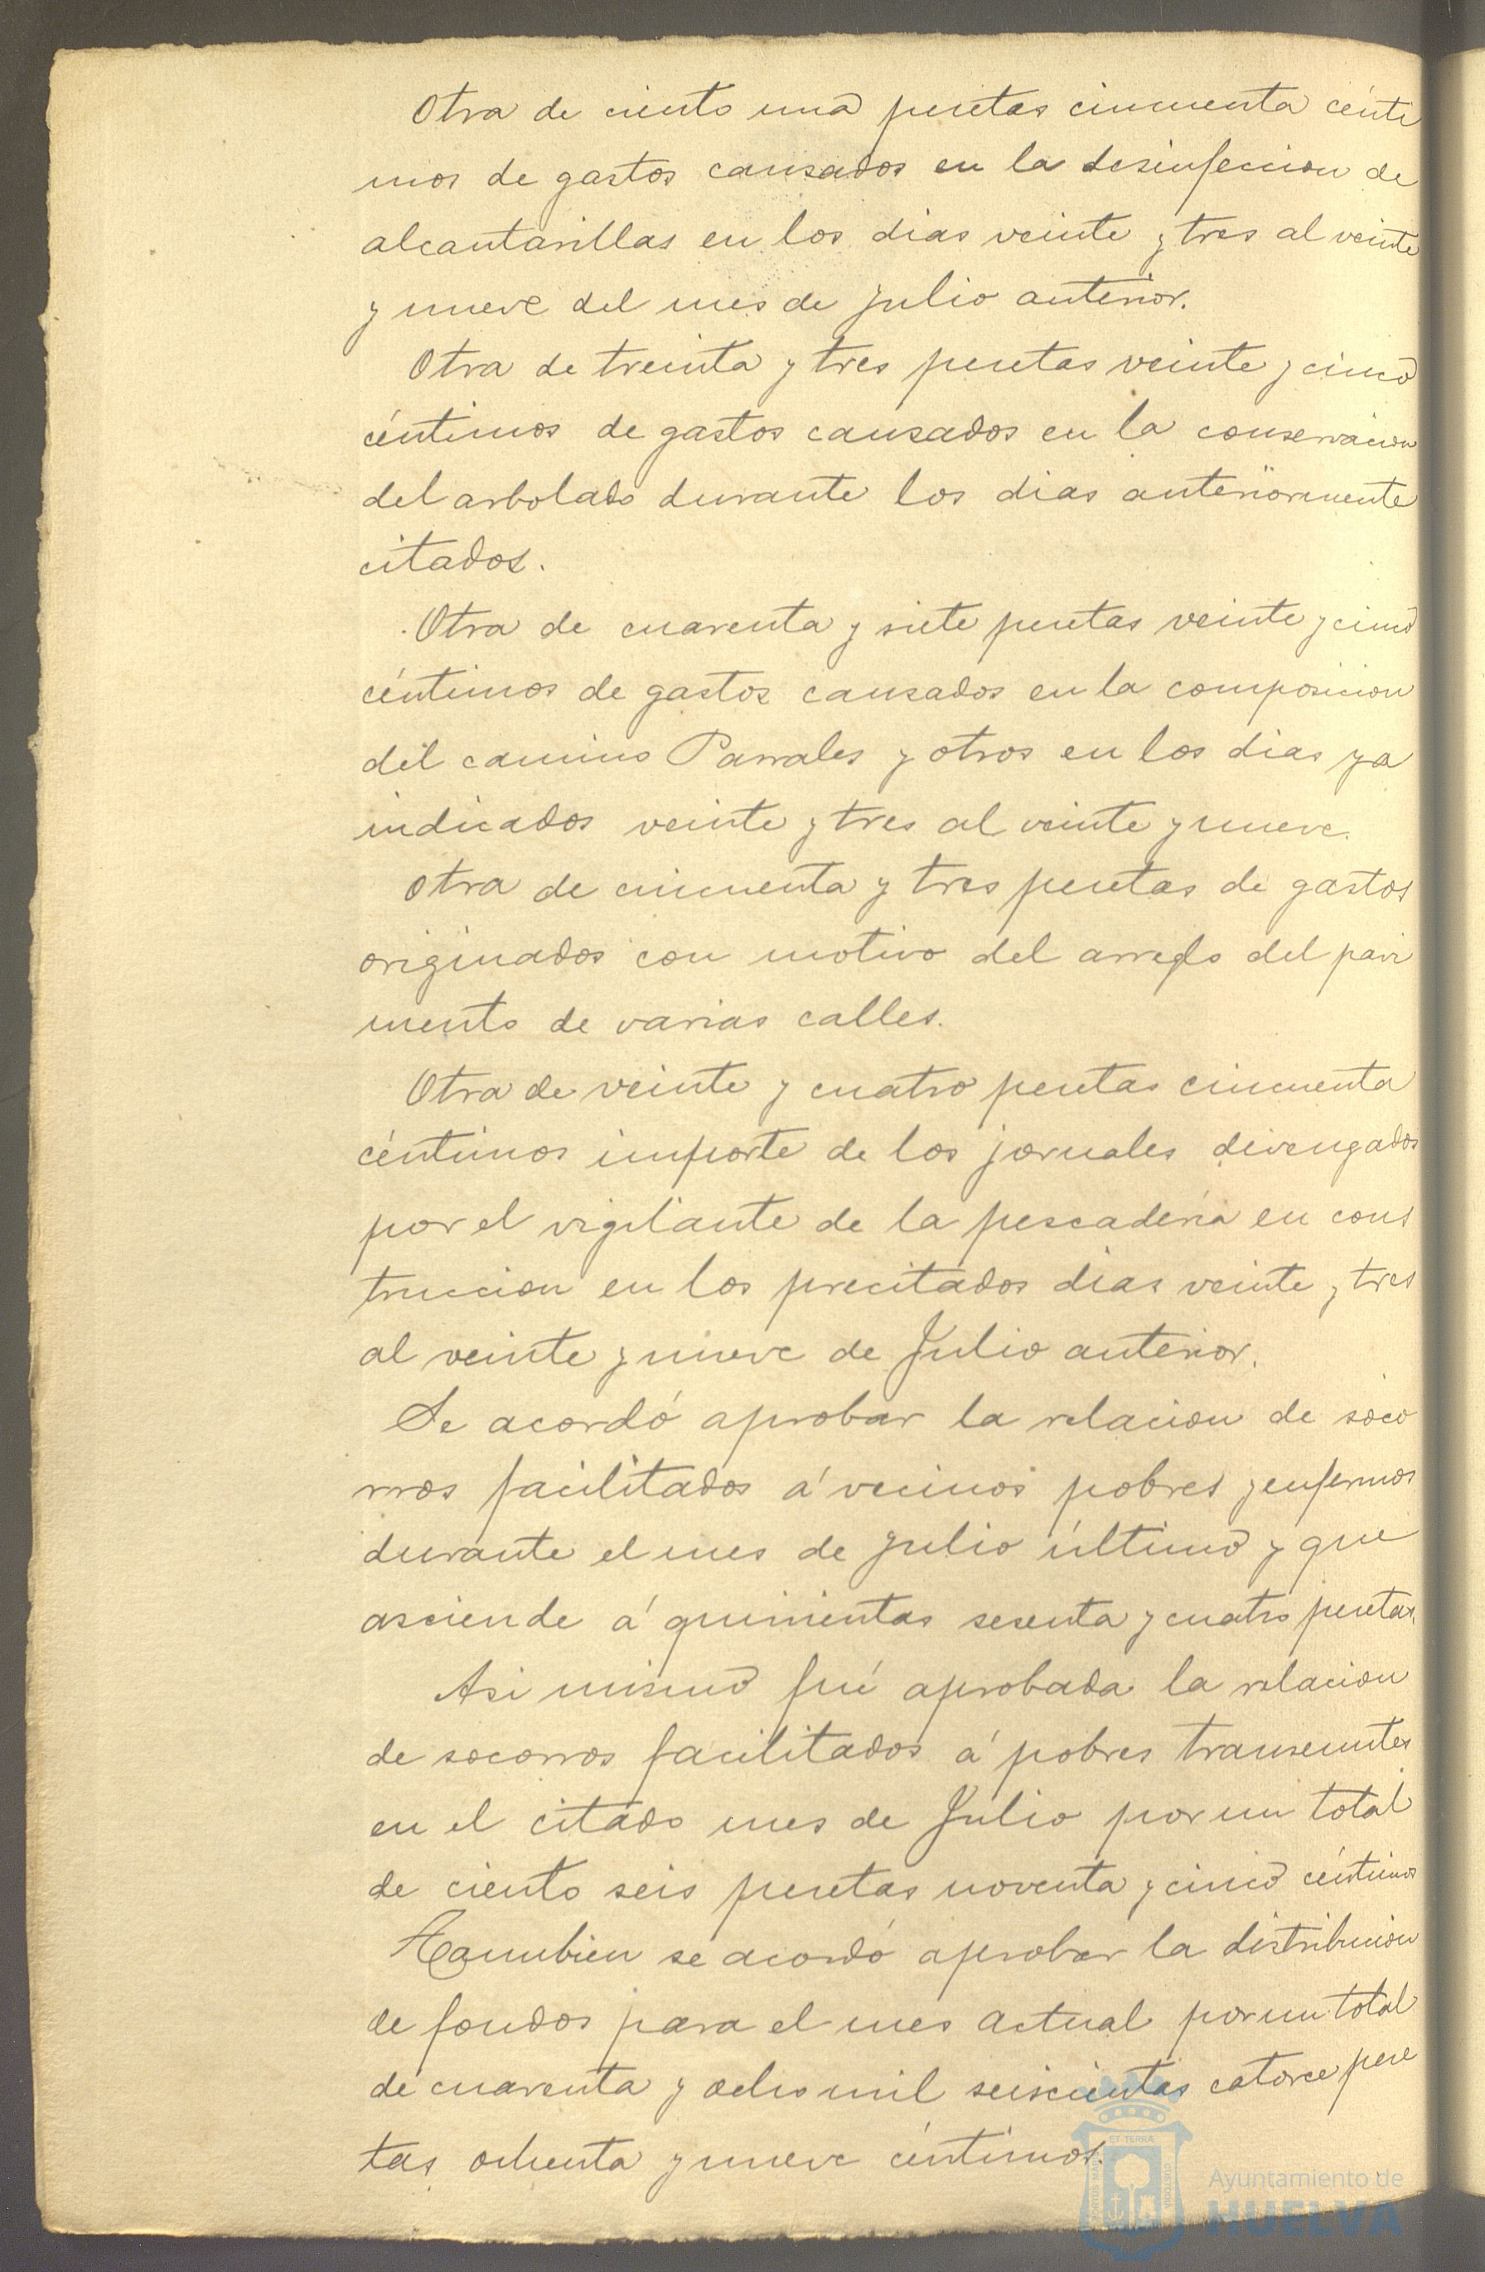 Otra de ciento una pesetas cincuenta cénti
mos de gastos causados en la desinfeccion de
alcantarillas en los dias veinte y tres al veinte
y nueve del mes de Julio anterior.
Otra de treinta y tres pesetas veinte y cinco
céntimos de gastos causados en la conservacion
del arbolado durante los dias anteriormente
citados.
Otra de cuarenta y siete pesetas veinte y cinco
céntimos de gastos causados en la composicion
del camino Parrales y otros en los dias ya
indicados veinte y tres al veinte y nueve.
Otra de cincuenta y tres pesetas de gastos
originados con motivo del arreglo del pavi
mento de varias calles.
Otra de veinte y cuatro pesetas cincuenta
céntimos importe de los jornales devengados
por el vigilante de la pescadería en cons
truccion en los precitados dias veinte y tres
al veinte y nueve de Julio anterior.
Se acordó aprobar la relacion de soco
rros facilitados á vecinos pobres y enfermos
durante el mes de Julio último y que
asciende á quinientas sesenta y cuatro pesetas.
Asi mismo fué aprobada la relacion
de socorros facilitados á pobres transeuntes
en el citado mes de Julio por un total
de ciento seis pesetas noventa y cinco céntimos
Tambien se acordó aprobar la distribucion
de fondos para el mes actual por un total
de cuarenta y ocho mil seiscientas catorce pese
tas ochenta y nueve céntimos.
Ayuntamiento de
HUELVA